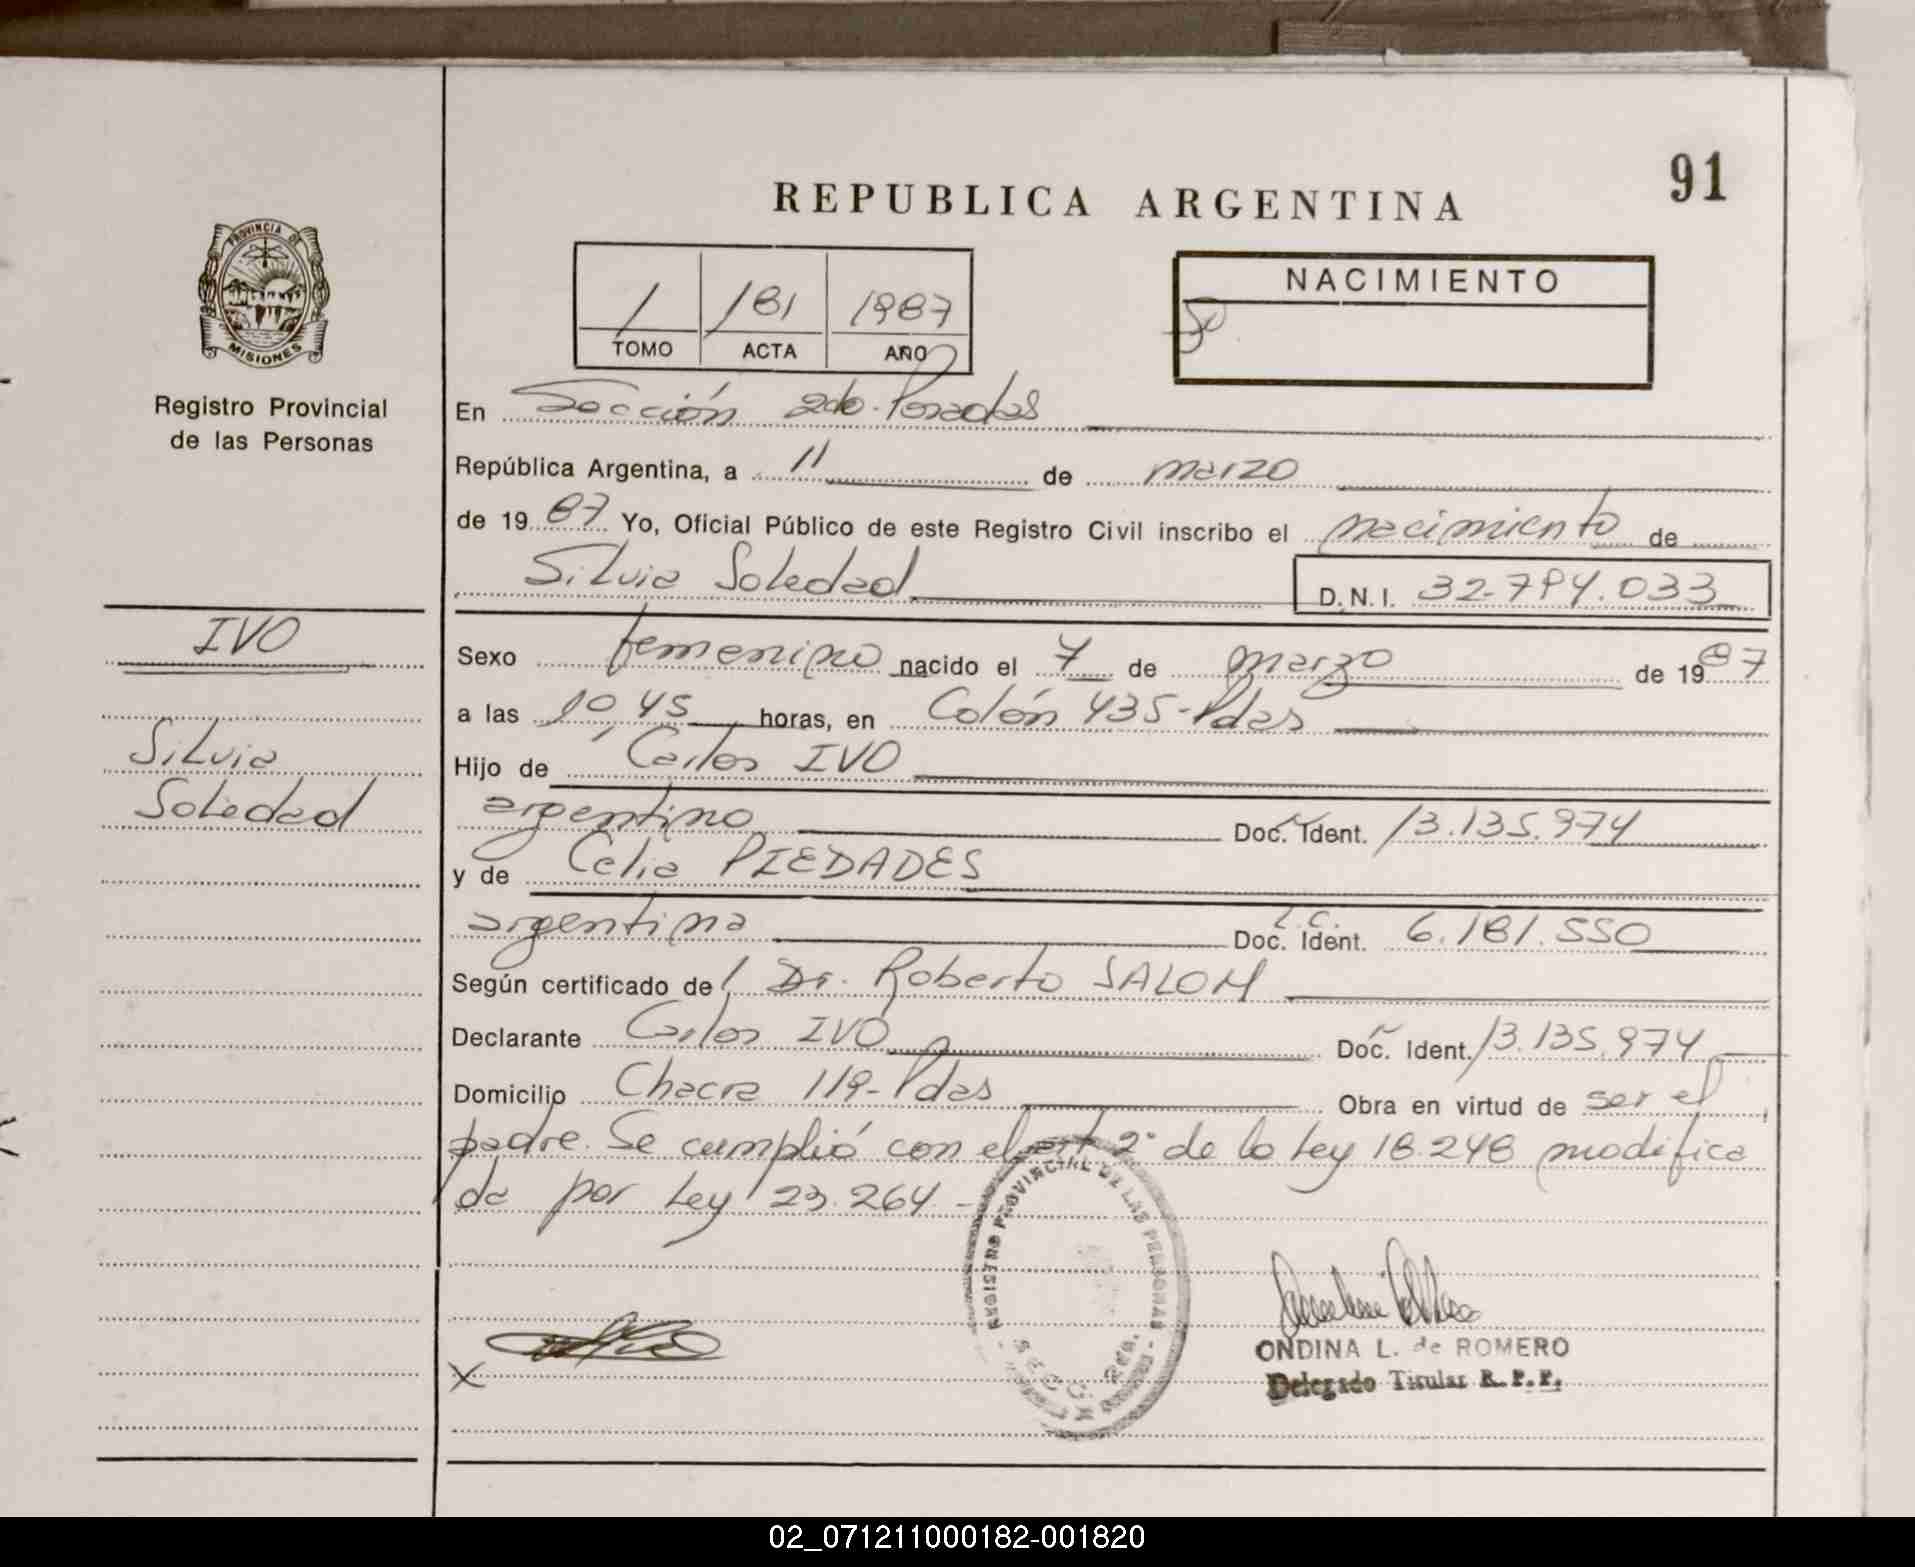 91
REPUBLICA ARGENTINA
PROVINCIA DE
MISIONES
Registro Provincial
de las Personas
1 181 1987
TOMO ACTA AÑO
NACIMIENTO
En Sección 2da. Posadas
República Argentina, a 11 de marzo
de 1987 Yo, Oficial Público de este Registro Civil inscribo el nacimiento de
Silvia Soledad D.N.I. 32.794.033
IVO
Silvia
Soledad
Sexo femenino nacido el 7 de marzo de 1987
a las 10,45 horas, en Colón 435-Pdas
Hijo de Carlos IVO
argentino Doc. Ident. 13.135.974
y de Celia PIEDADES
argentina L.C. Doc. Ident. 6.181.550
Según certificado del Dr. Roberto SALOM
Declarante Carlos IVO Doc. Ident. 13.135.974
Domicilio Chacra 119-Pdas Obra en virtud de ser el
padre. Se cumplió con el art 2° de la Ley 18.248 modifica
da por Ley 23.264.-
REGISTRO PROVINCIAL DE LAS PERSONAS
MISIONES
SECC. 2da.
X
ONDINA L. de ROMERO
Delegado Titular R. P. P.
02_071211000182-001820